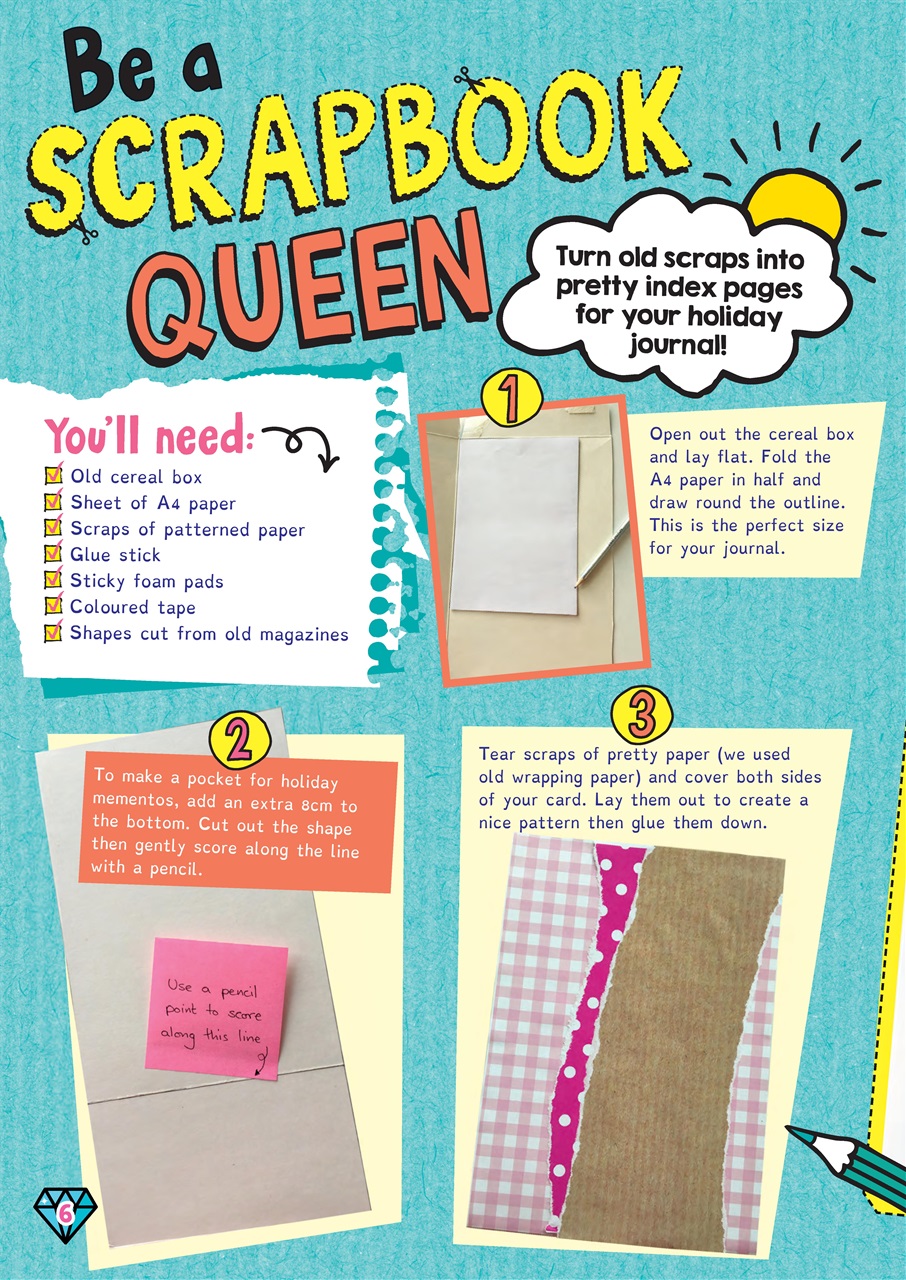 Be a
SCRAPBOOK
QUEEN
Turn old scraps into
pretty index pages
for your holiday
journal!
You'll need:
Old cereal box
Sheet of A4 paper
Scraps of patterned paper
Glue stick
Sticky foam pads
Coloured tape
Shapes cut from old magazines
1
Open out the cereal box
and lay flat. Fold the
A4 paper in half and
draw round the outline.
This is the perfect size
for your journal.
2
To make a pocket for holiday
mementos, add an extra 8cm to
the bottom. Cut out the shape
then gently score along the line
with a pencil.
Use a pencil
point to score
along this line
3
Tear scraps of pretty paper (we used
old wrapping paper) and cover both sides
of your card. Lay them out to create a
nice pattern then glue them down.
6